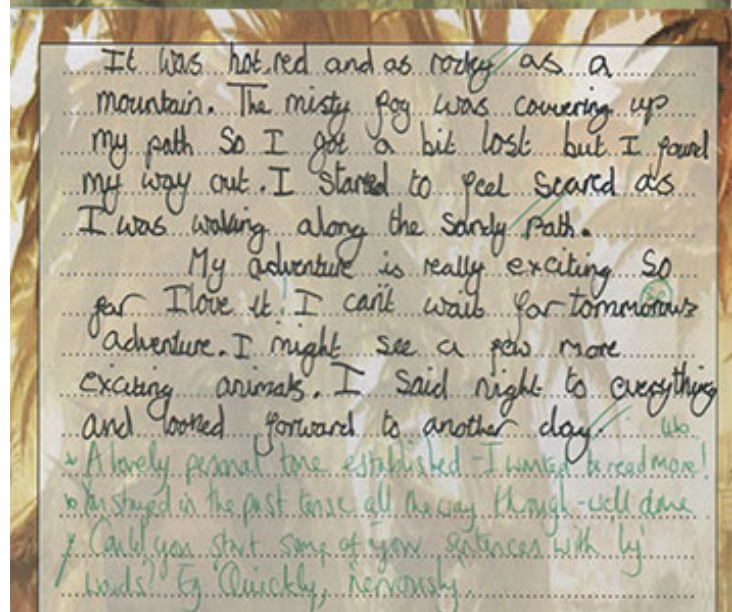 It was hot, red and as rocky as a
mountain. The misty fog was couvering up
my path So I got a bit lost but I found
my way out. I started to feel Scared as
I was walking along the Sandy Path.
My adventure is really exciting So
far I love it! I can't wait for tommorows
adventure. I might see a few more
exciting animals. I Said night to everything
and looked forward to another day.
A lovely personal tone established - I wanted to read more!
You stayed in the past tense all the way through - well done
Could you start some of your sentences with 'ly'
words? Eg 'Quickly, nervously'.